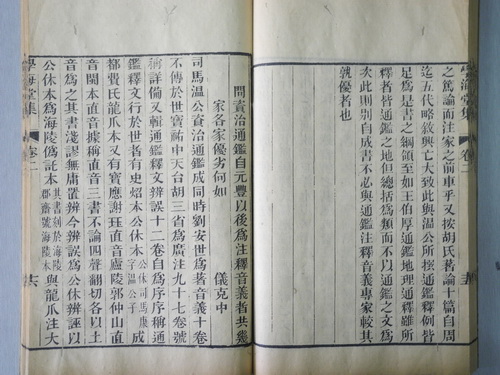 學海堂集 卷二
之篤論而注家之前車乎又按胡氏著論十篇自周
迄五代略敘興亡大致此與溫公所標通鑑釋例皆
足為是書之綱領至如王伯厚通鑑地理通釋雖所
釋者皆通鑑之地但總括為類而不以通鑑之文為
次此則別自成書不必與通鑑注釋音義專家較其
孰優者也
問資治通鑑自元豐以後為注釋音義者共幾
家各家優劣何如
儀克中
司馬溫公資治通鑑成同時劉安世為著音義十卷
不傳於世寶祐中天台胡三省為廣注九十七卷號
稱詳備又輯通鑑釋文辨誤十二卷自為序稱通
鑑釋文行於世者有史炤本公休本公休司馬康字溫公子成
都費氏龍爪本又有寶應謝珏直音廬陵郭仲山直
音閩本直音據稱直音三書不論四聲翻切各以土
音為之其書淺謬無庸置辨今辨誤為公休辨誣以
公休本為海陵偽託本其書刻於海陵郡齋號海陵本與龍爪注大
學海堂集 卷二 六